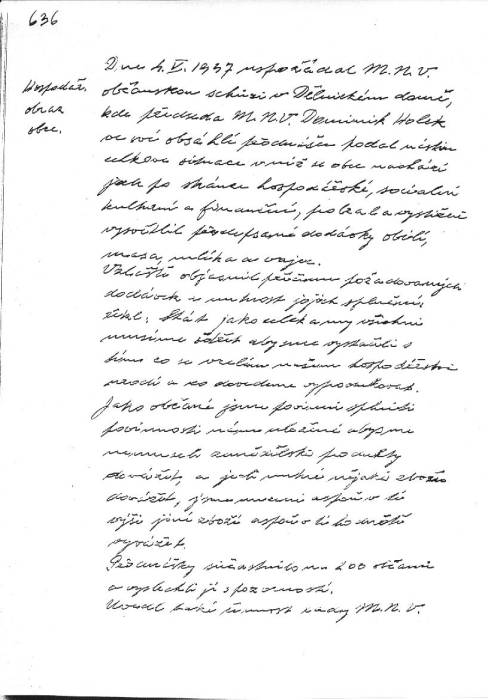 636
Hospodář.
obraz
obce.
Dne 4. V. 1957 uspořádal M.N.V.
občanskou schůzi v Dělnickém domě,
kde předseda M.N.V Dominik Holek
ve své obsáhlé přednášce podal nástin
celkové situace v níž se obec nachází
jak po stránce hospodářské, sociální
kulturní a finanční, probral a výstižně
vysvětlil předepsané dodávky obilí,
masa, mléka a vajec.
Zvláště objasnil příčinu požadovaných
dodávek a nutnost jejich splnění,
řekl: Stát jako celek a my všichni
musíme šetřit abychom vystačili s
tím co se v celém našem hospodářství
urodí a co dovedeme vypěstovat.
Jako občané jsme povinni splniti
povinnosti nám uložené abychom
nemuseli zemědělské produkty
dovážet, a je-li nutné nějaké zboží
dovážet, jsme nuceni aspoň v té
výši jiné zboží aspoň v té hodnotě
vyvážet.
Přednášky súčastnilo na 200 občanů
a vyslechli ji s pozorností.
Uvedl také činnost rady M.N.V.